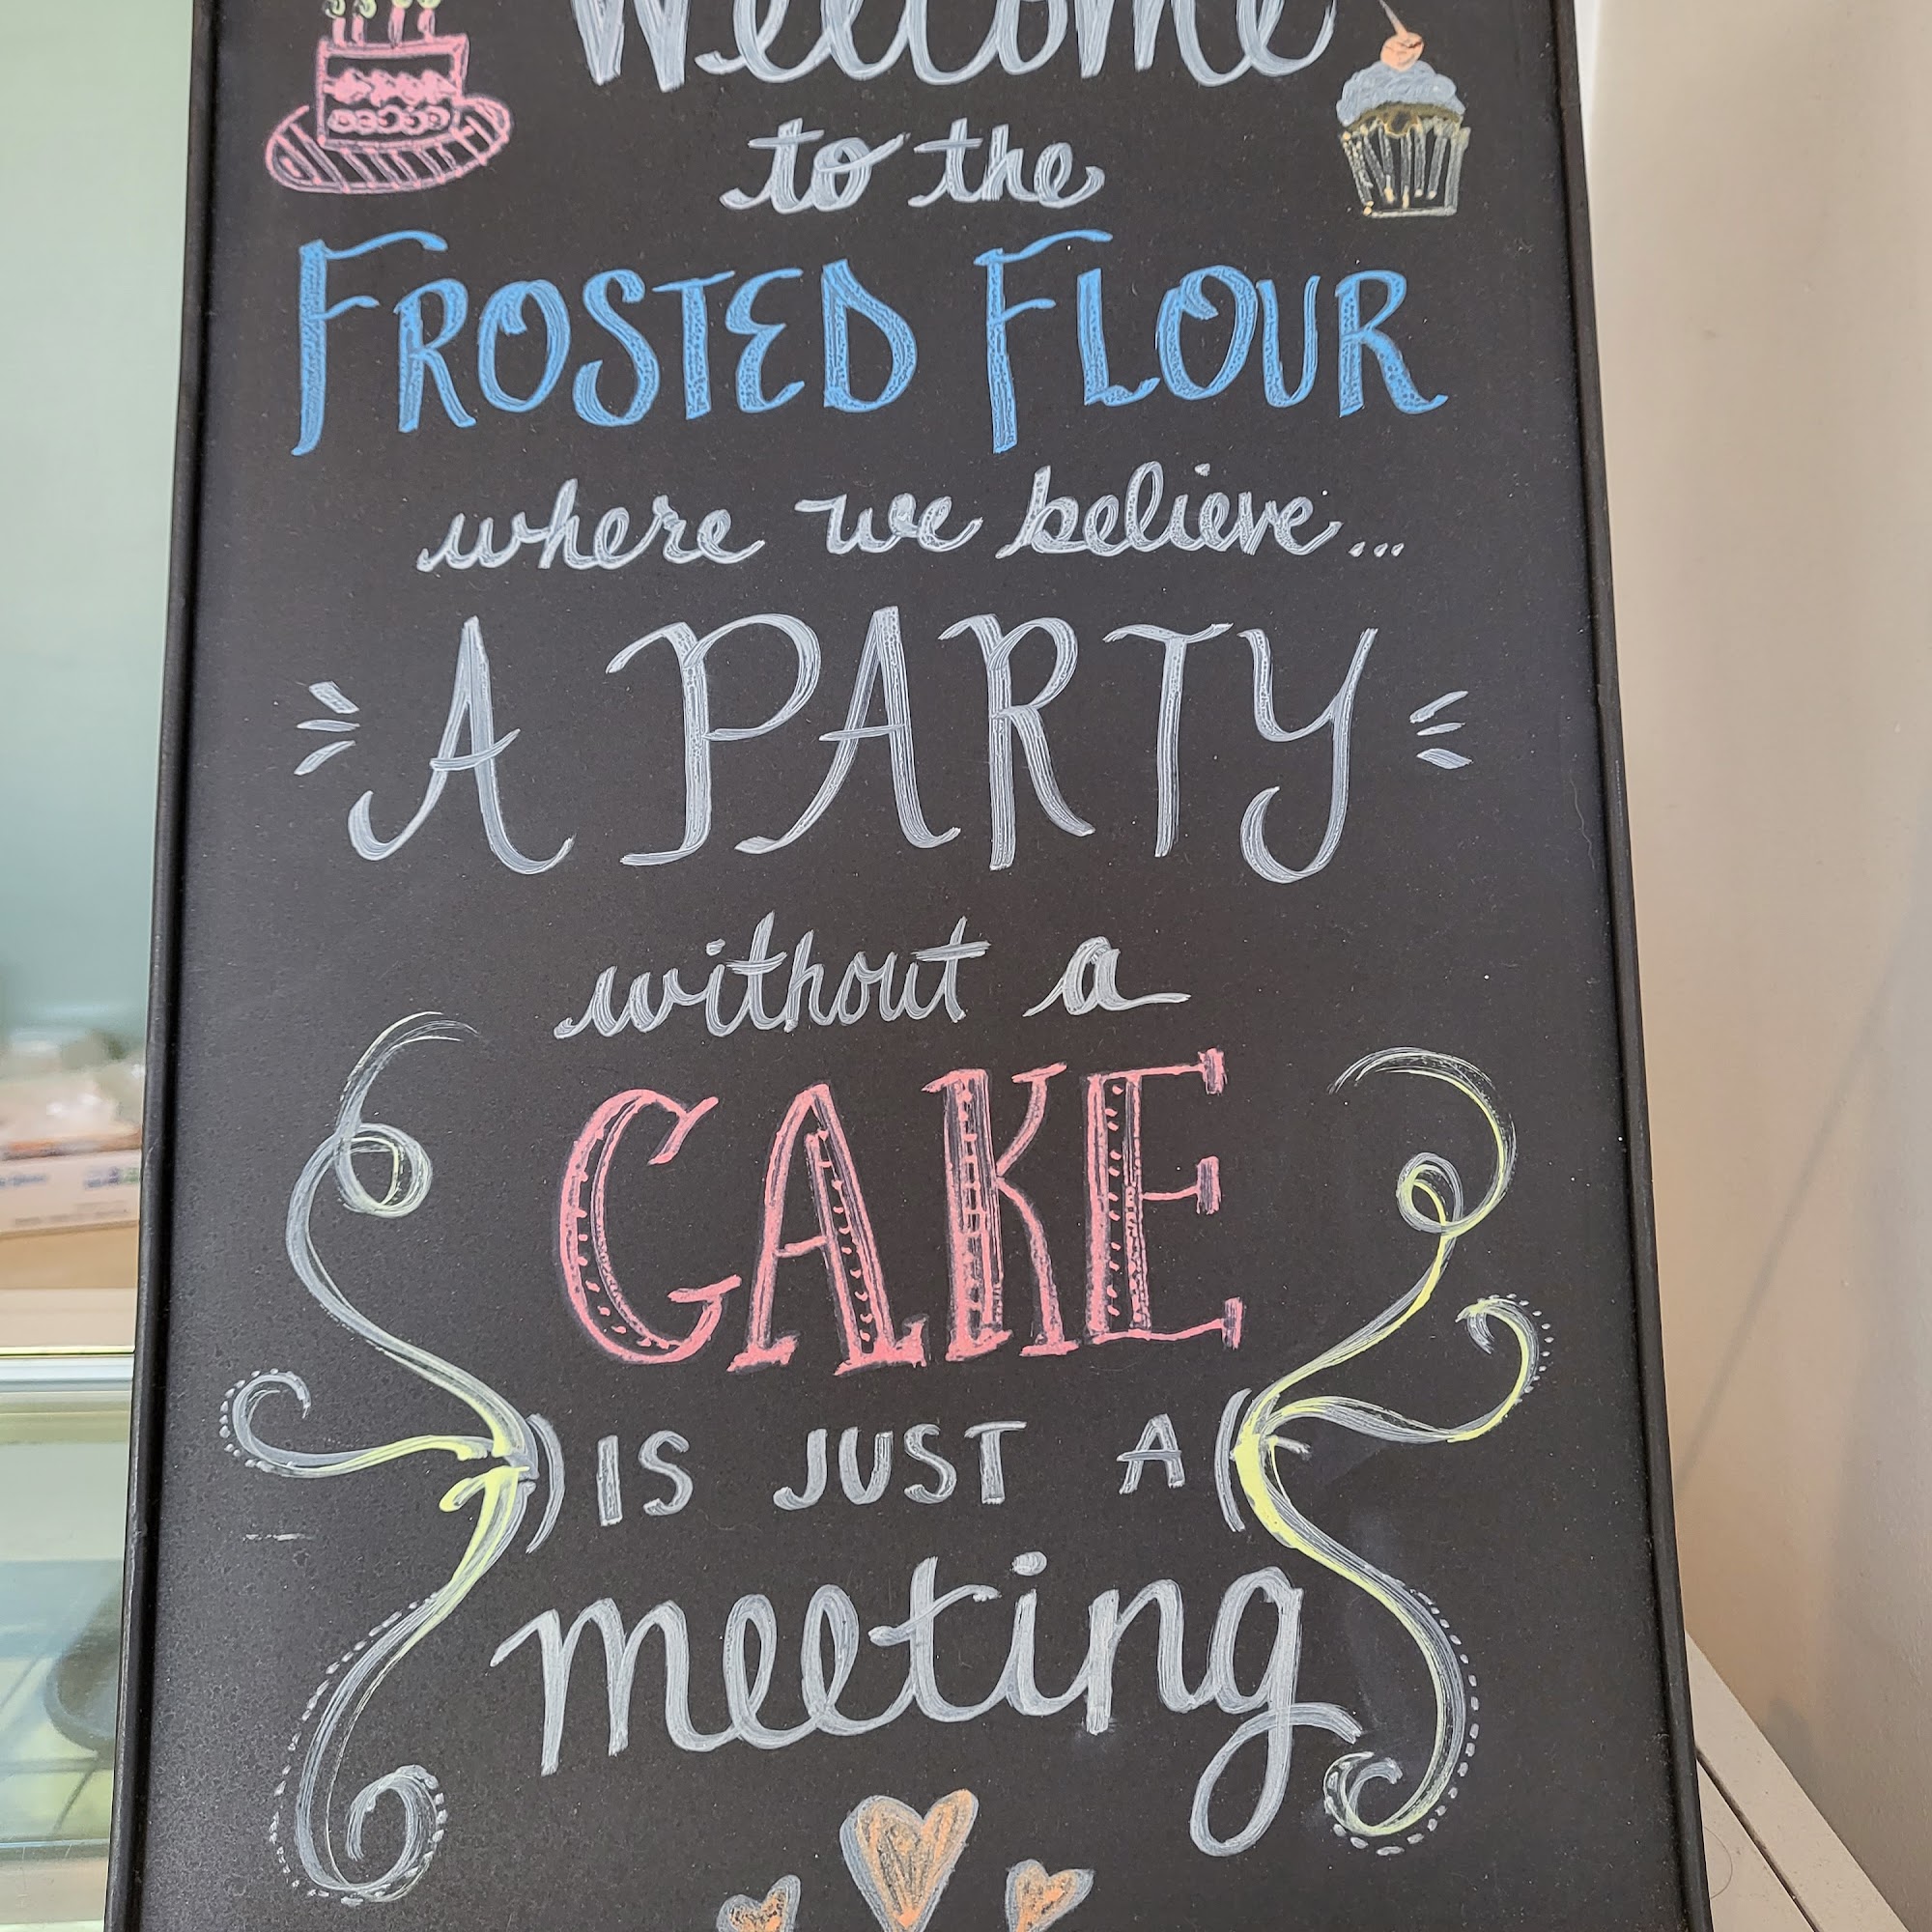 Welcome
to the
FROSTED FLOUR
where we believe...
A PARTY
without a
CAKE
IS JUST A
meeting